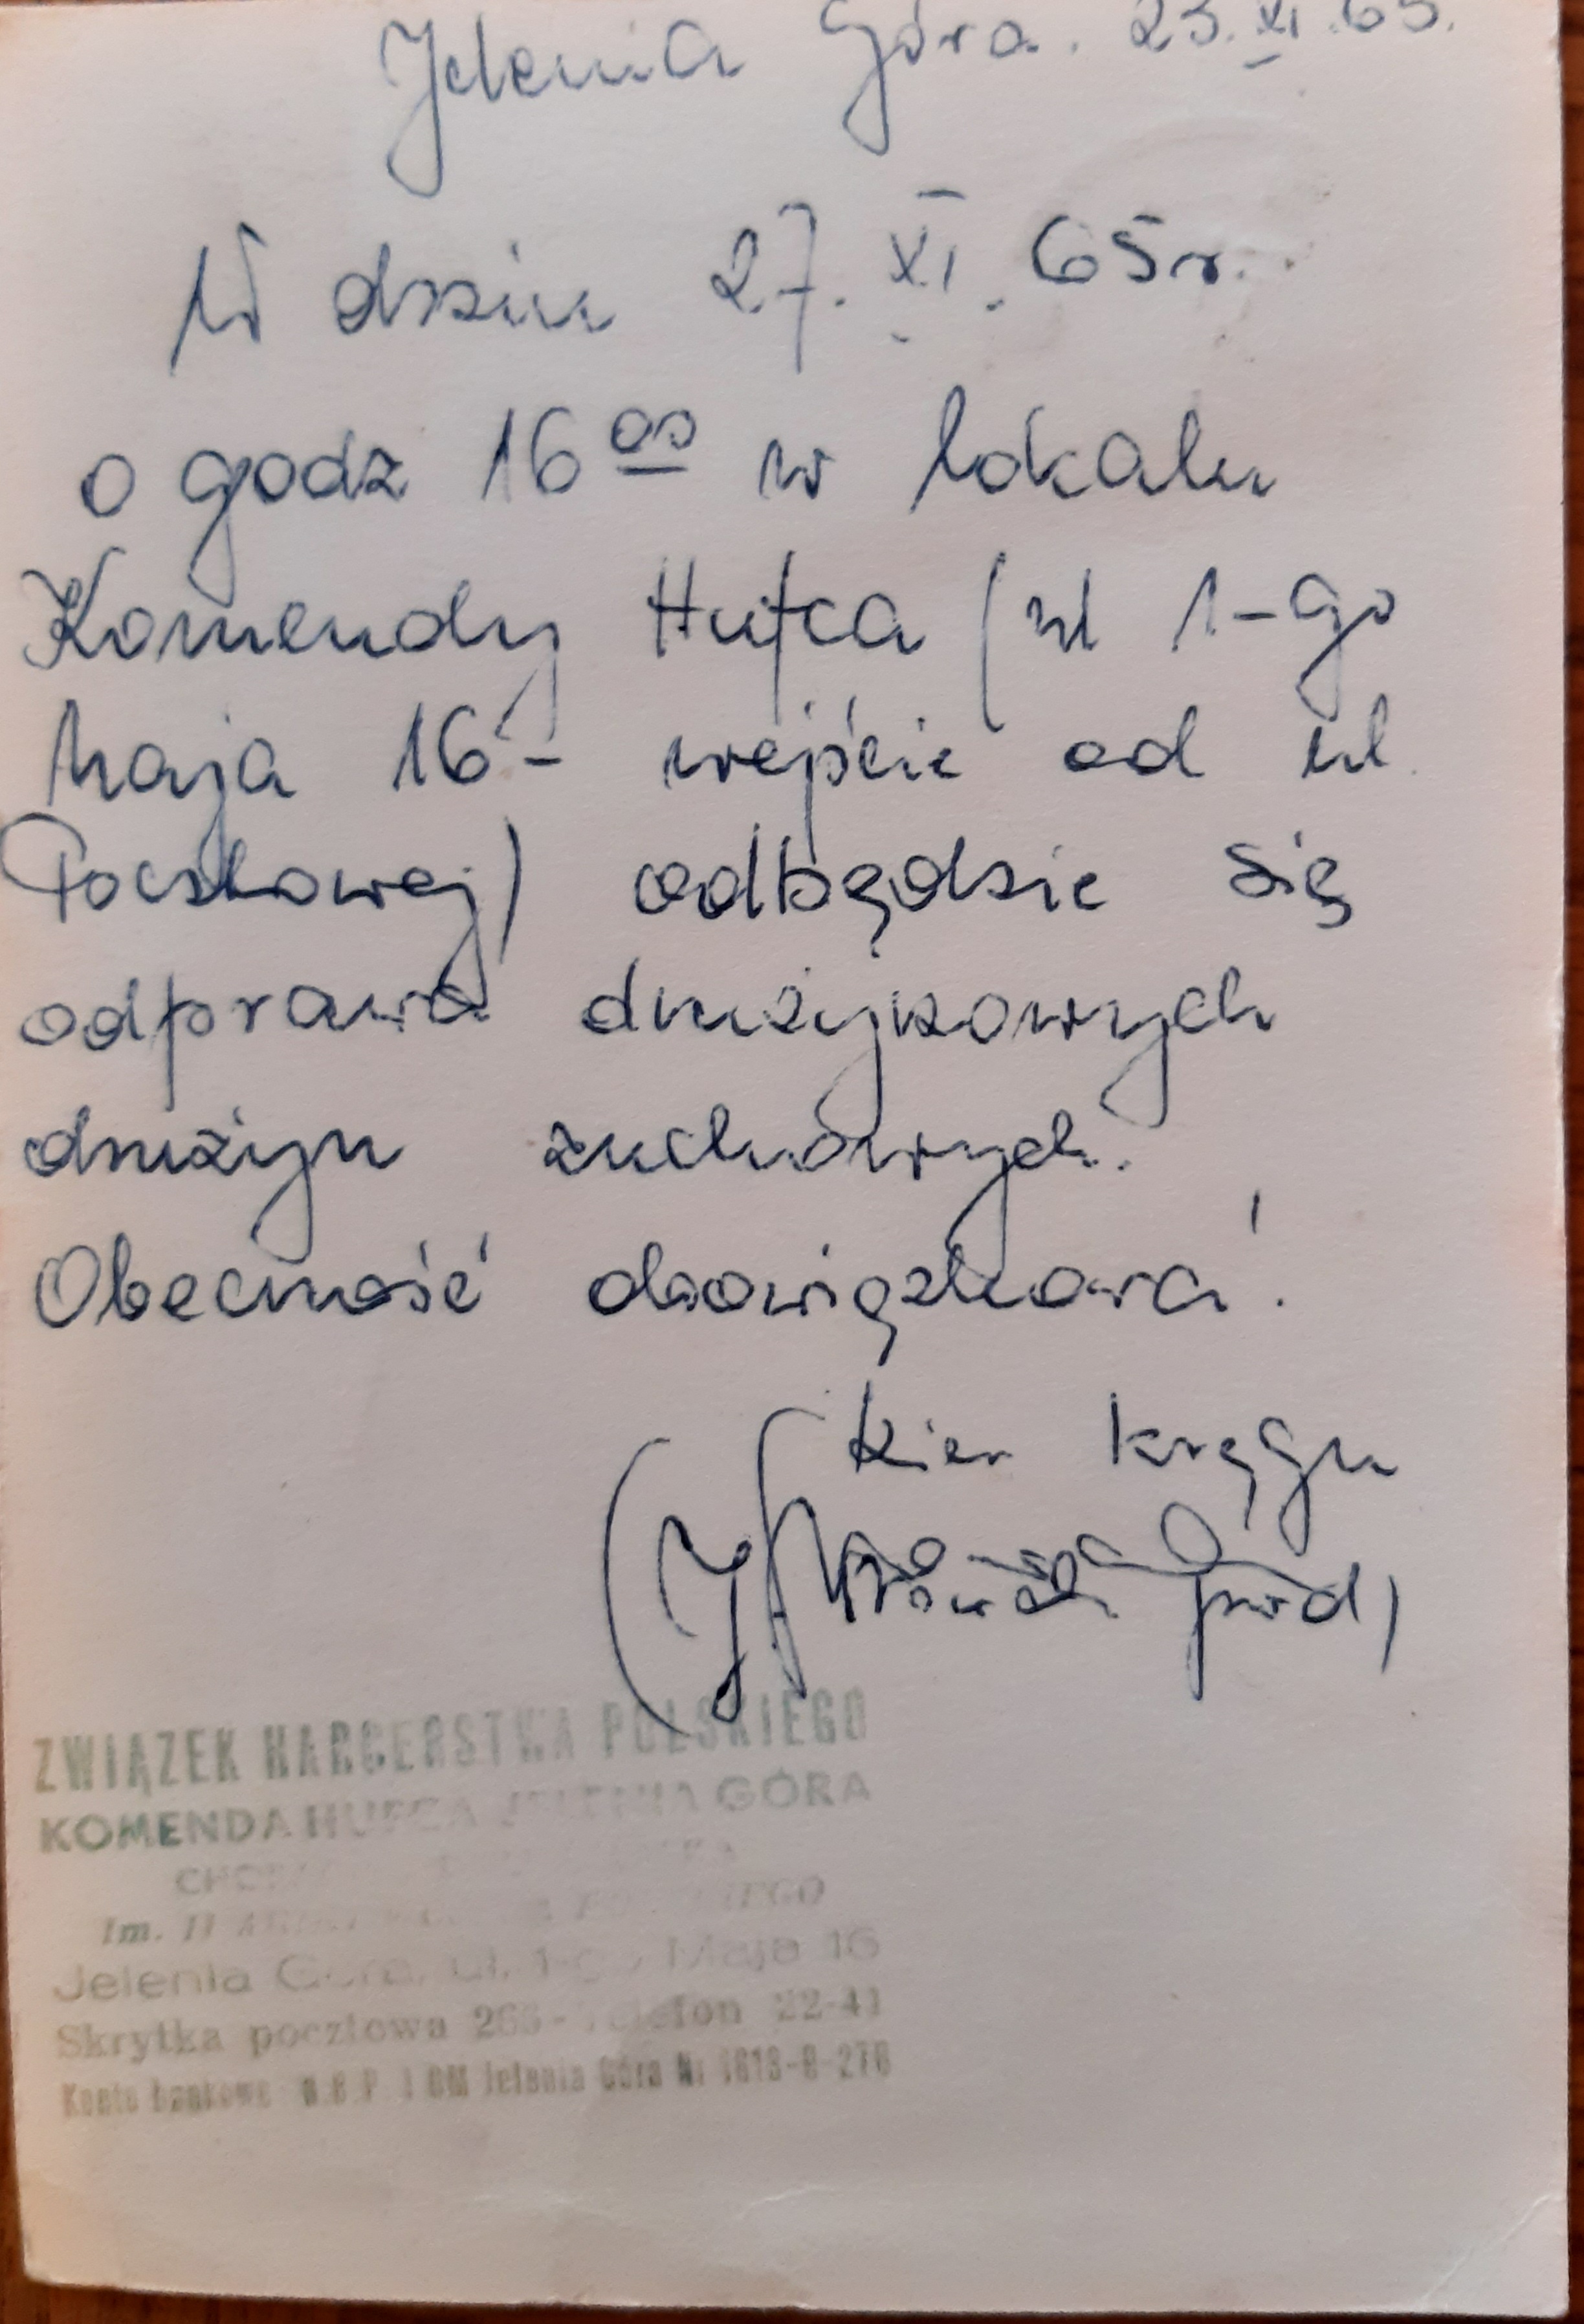 Jelenia Góra. 23.XI.65.
W dniu 27.XI.65r.
o godz 16 00 w lokalu
Komendy Hufca (ul 1-go
Maja 16 - wejście od ul.
Pocztowej) odbędzie się
odprawa drużynowych
drużyn zuchowych.
Obecność obowiązkowa!
Kier kręgu
ZWIĄZEK HARCERSTWA POLSKIEGO
KOMENDA HUFCA JELENIA GÓRA
Im. II
Jelenia Góra, ul. 1-go Maja 16
Skrytka pocztowa 263 - Telefon 22-41
Konto bankowe N.B.P. I OM Jelenia Góra Nr 1613-9-276